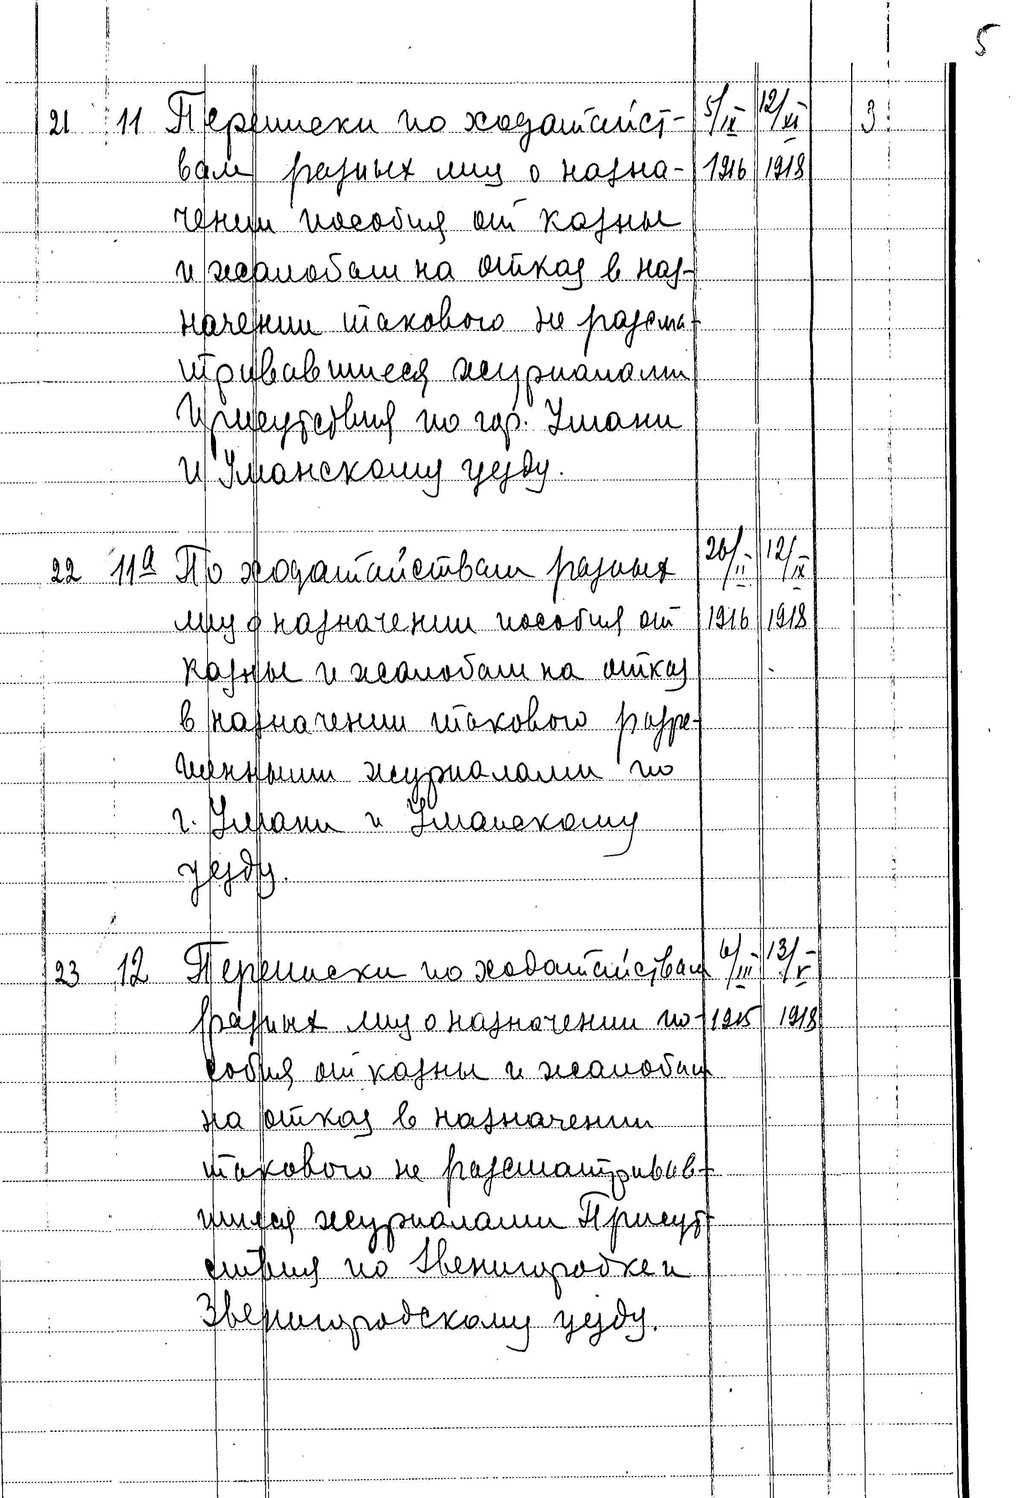 5
21 11 Переписки по ходатайст- 5/IX 12/XI 3
вам разных лиц о назна- 1916 1918
чении пособия от казны
и жалобам на отказ в наз-
начении такового не рассма-
тривавшиеся журналами
Присутствия по гор. Умани
и Уманскому уезду.
22 11а По ходатайствам разных 26/II 12/IX
лиц о назначении пособия от 1916 1918
казны и жалобам на отказ
в назначении такового разре-
шенными журналами по
г. Умани и Уманскому
уезду.
23 12 Переписки по ходатайствам 6/III 13/V
разных лиц о назначении по- 1915 1918
собия от казны и жалобам
на отказ в назначении
такового не рассматривав-
шиеся журналами Присут-
ствия по Звенигородке и
Звенигородскому уезду.